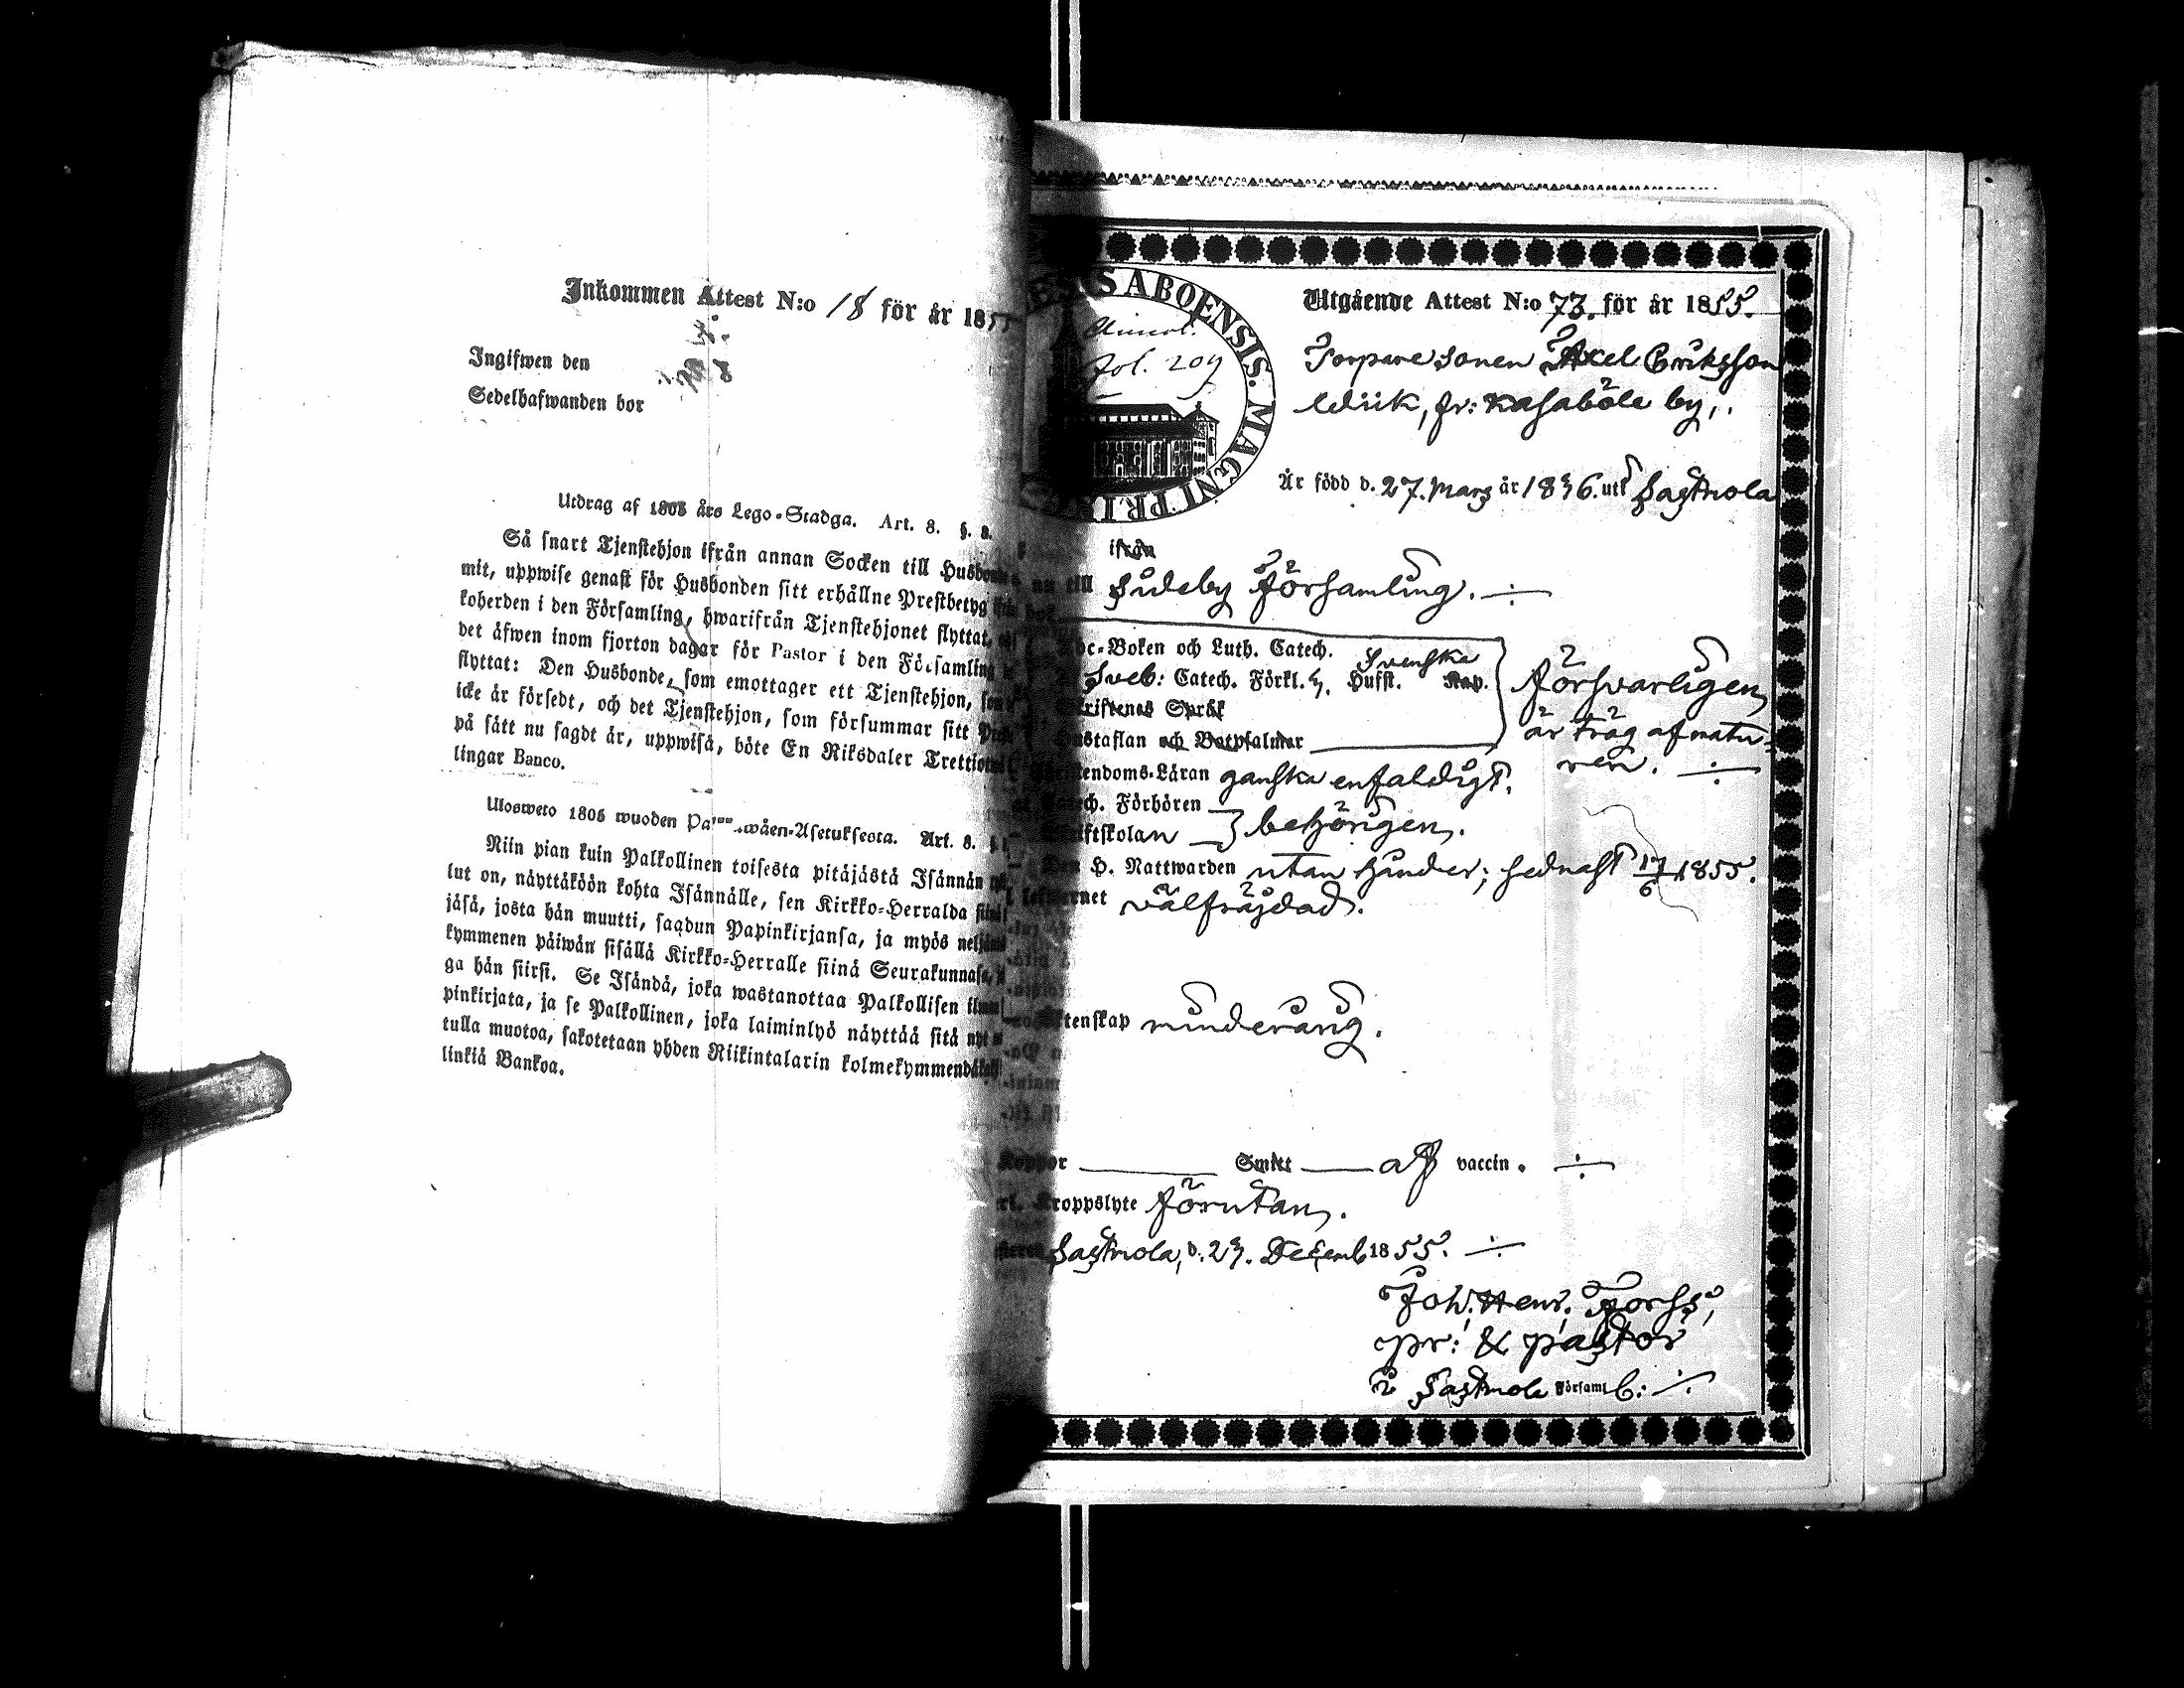 Inkommen Attest N:o 18 för år 1855
Ingifwen den
Sedelhafwanden bor
Utdrag af 1805 års Lego-Stadga. Art. 8. §. 8.
Så snart Tjenstehjon ifrån annan Socken till Husbonde
mit, uppwise genast för Husbonden sitt erhållne Prestbetyg
koherden i den Församling, hwarifrån Tjenstehjonet flyttat,
det äfwen inom fjorton dagar för Pastor i den Församling
flyttat: Den Husbonde, som emottager ett Tjenstehjon, som
icke är försedt, och det Tjenstehjon, som försummar sitt
på sätt nu sagdt är, uppwisa, böte En Riksdaler Trettiotwå
lingar Banco.
Ulosweto 1805 wuoden Pal wäen-Asetuksesta. Art. 8. §
Niin pian kuin Palkollinen toisesta pitäjästä Isännän
lut on, näyttäköön kohta Isännälle, sen Kirkko-Herralda siinä
jäsä, josta hän muutti, saadun Papinkirjansa, ja myös neljän
kymmenen päiwän sisällä Kirkko-Herralle siinä Seurakunnasa,
ga hän siirsi. Se Isändä, joka wastanottaa Palkollisen ilman
pinkirjata, ja se Palkollinen, joka laiminlyö näyttää sitä nyt
tulla muotoa, sakotetaan yhden Riikintalarin kolmekymmendäkaksi
linkiä Bankoa.
ENSIS ABOENSIS. MAGNI PRIN
fol. 209
Utgående Attest N:o 73. för år 1855.
Torpare sonen Axel Eriksson
Wiik, fr: Kasaböle by,
Är född d. 27. Mars år 1836. uti Sastmola
ifrån
nu till Sideby Församling. ÷
Abc-Boken och Luth. Catech.
Sveb: Catech. Förkl. Hufst. Svenska Kap.
Skriftenes Språk
Hustaflan och Botpsalmer
Försvarligen,
är trög af natu=
ren. ÷
Christendoms-Läran ganska enfaldigt.
Catech. Förhören
Skriftskolan } behörigen.
H. Nattwarden utan hinder; sednast 17/6 1855.
lefwernet välfräjdad.
Ægtenskap minderårig.
Koppor Smitt af vaccin. ÷
Kroppslyte förutan.
Sastmola, d. 23. Decemb 1855. ÷
Joh. Henr. Forss,
pr: & pastor
i Sastmola Församl b: ÷